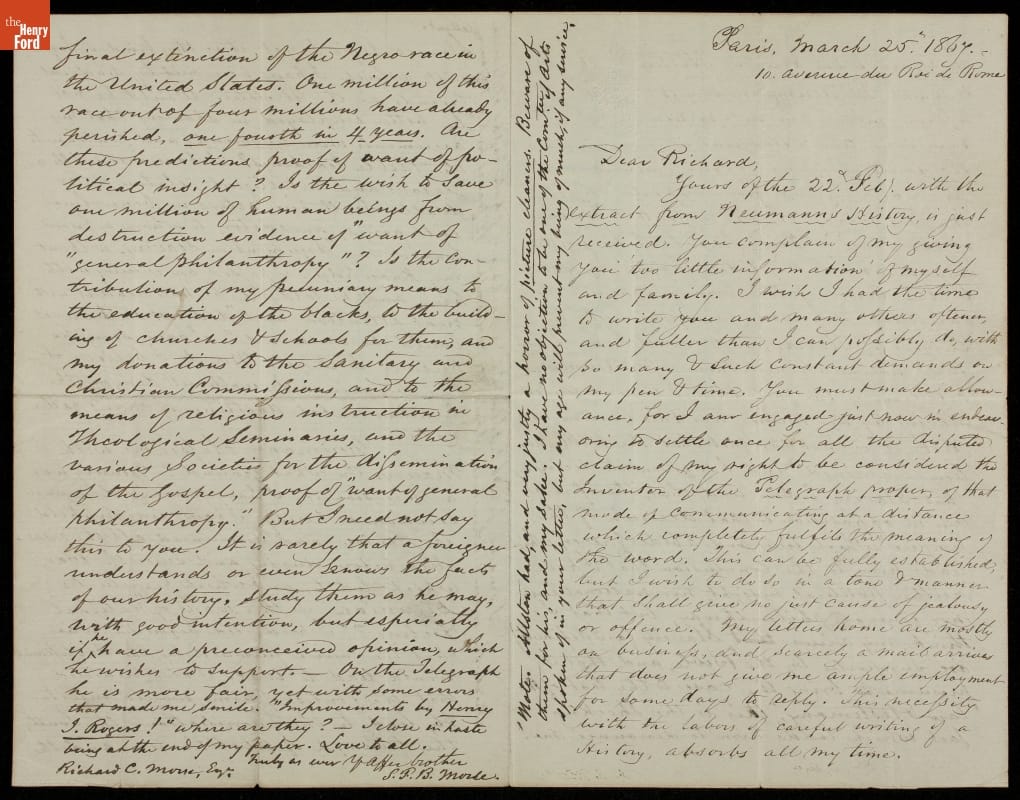 the Henry Ford
Paris, March 25th 1867.—
10. avenue du Roi de Rome
Dear Richard,
Yours of the 22d Feby. with the
extract from Neumanns History, is just
received. You complain of my giving
you 'too little information' of myself
and family. I wish I had the time
to write you and many others oftener,
and fuller than I can possibly do, with
so many & such constant demands on
my pen & time. You must make allow-
ance, for I am engaged just now in endeav-
oring to settle once for all the disputed
claim of my right to be considered the
Inventor of the Telegraph proper, of that
mode of communicating at a distance
which completely fulfils the meaning of
the word. This can be fully established,
but I wish to do so in a tone & manner
that shall give no just cause of jealousy
or offence. My letters home are mostly
on business, and scarcely a mail arrives
that does not give me ample employment
for some days to reply. This necessity
with the labors of careful writing of a
History, absorbs all my time.
final extinction of the Negro race in
the United States. One million of this
race out of four millions have already
perished, one fourth in 4 years. Are
these predictions proof of want of po-
litical insight? Is the wish to save
one million of human beings from
destruction evidence of "want of
"general philanthropy"? Is the con-
tribution of my pecuniary means to
the education of the blacks, to the build-
ing of churches & schools for them, and
my donations to the Sanitary and
Christian Commissions, and to the
means of religious instruction in
Theological Seminaries, and the
various Societies for the dissemination
of the Gospel, proof of "want of general
philanthropy." But I need not say
this to you. It is rarely that a foreigner
understands or even knows the facts
of our history. Study them as he may,
with good intention, but especially
if he have a preconceived opinion, which
he wishes to support. — On the Telegraph
he is more fair, yet with some errors
that made me smile. "Improvements by Henry
J. Rogers!" where are they? — I close in haste
being at the end of my paper. Love to all.
Truly as ever Yr affec brother
Richard C. Morse, Esqr. S. F. B. Morse.
Note. Allston had, and very justly a horror of picture cleaners. Beware of
them for his, and, my sake. I have no objection to be one of the Comtee of Arts
spoken of in your letter, but my age will prevent my being of much, if any service.